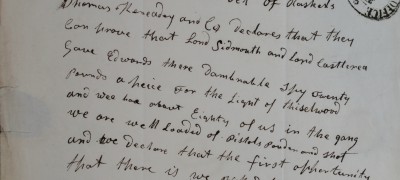 Set of Raskels
Thomas Keneaday and Co Declares that they
Can prove that Lord Sidmouth and Lord Castlerea
Gave Edwards there Damnable Spy Twnty
Pounds a peice For the Light of Thiselwood
and wee haw about Eighty of us in the gang
we are well Loaded of Pistols Powder and Shot
and we Declare that the first opportunity
that there is we
OFFICE